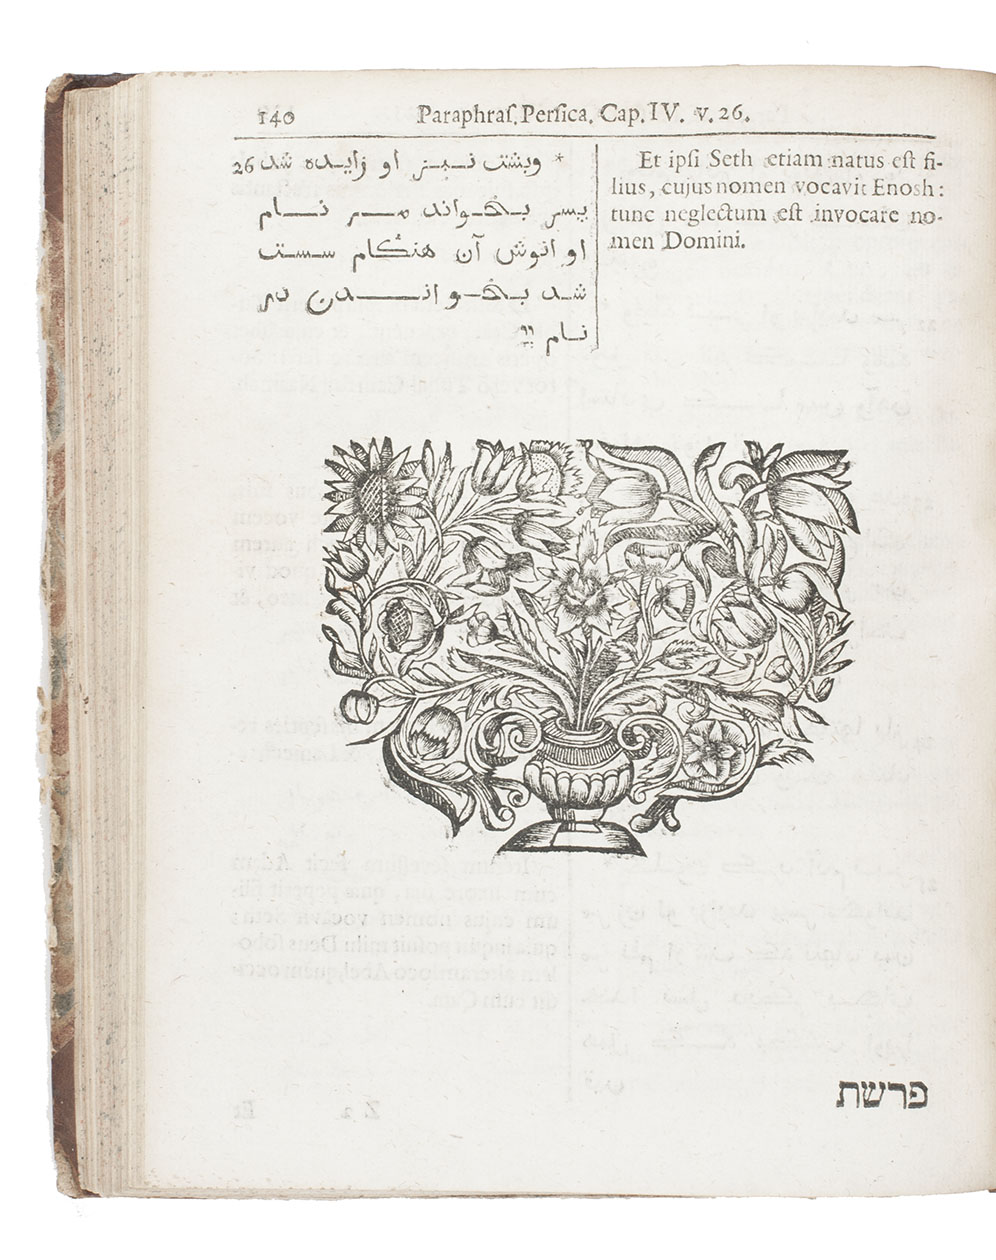 140 Paraphras. Persica. Cap. IV. v. 26.
26 * وبشت نيز او زاييده شد
پسر بخواند مر نام
او انوش آن هنگام سست
شد بخواندن
نام
Et ipsi Seth etiam natus est fi-
lius, cujus nomen vocavit Enosh:
tunc neglectum est invocare no-
men Domini.
פרשת